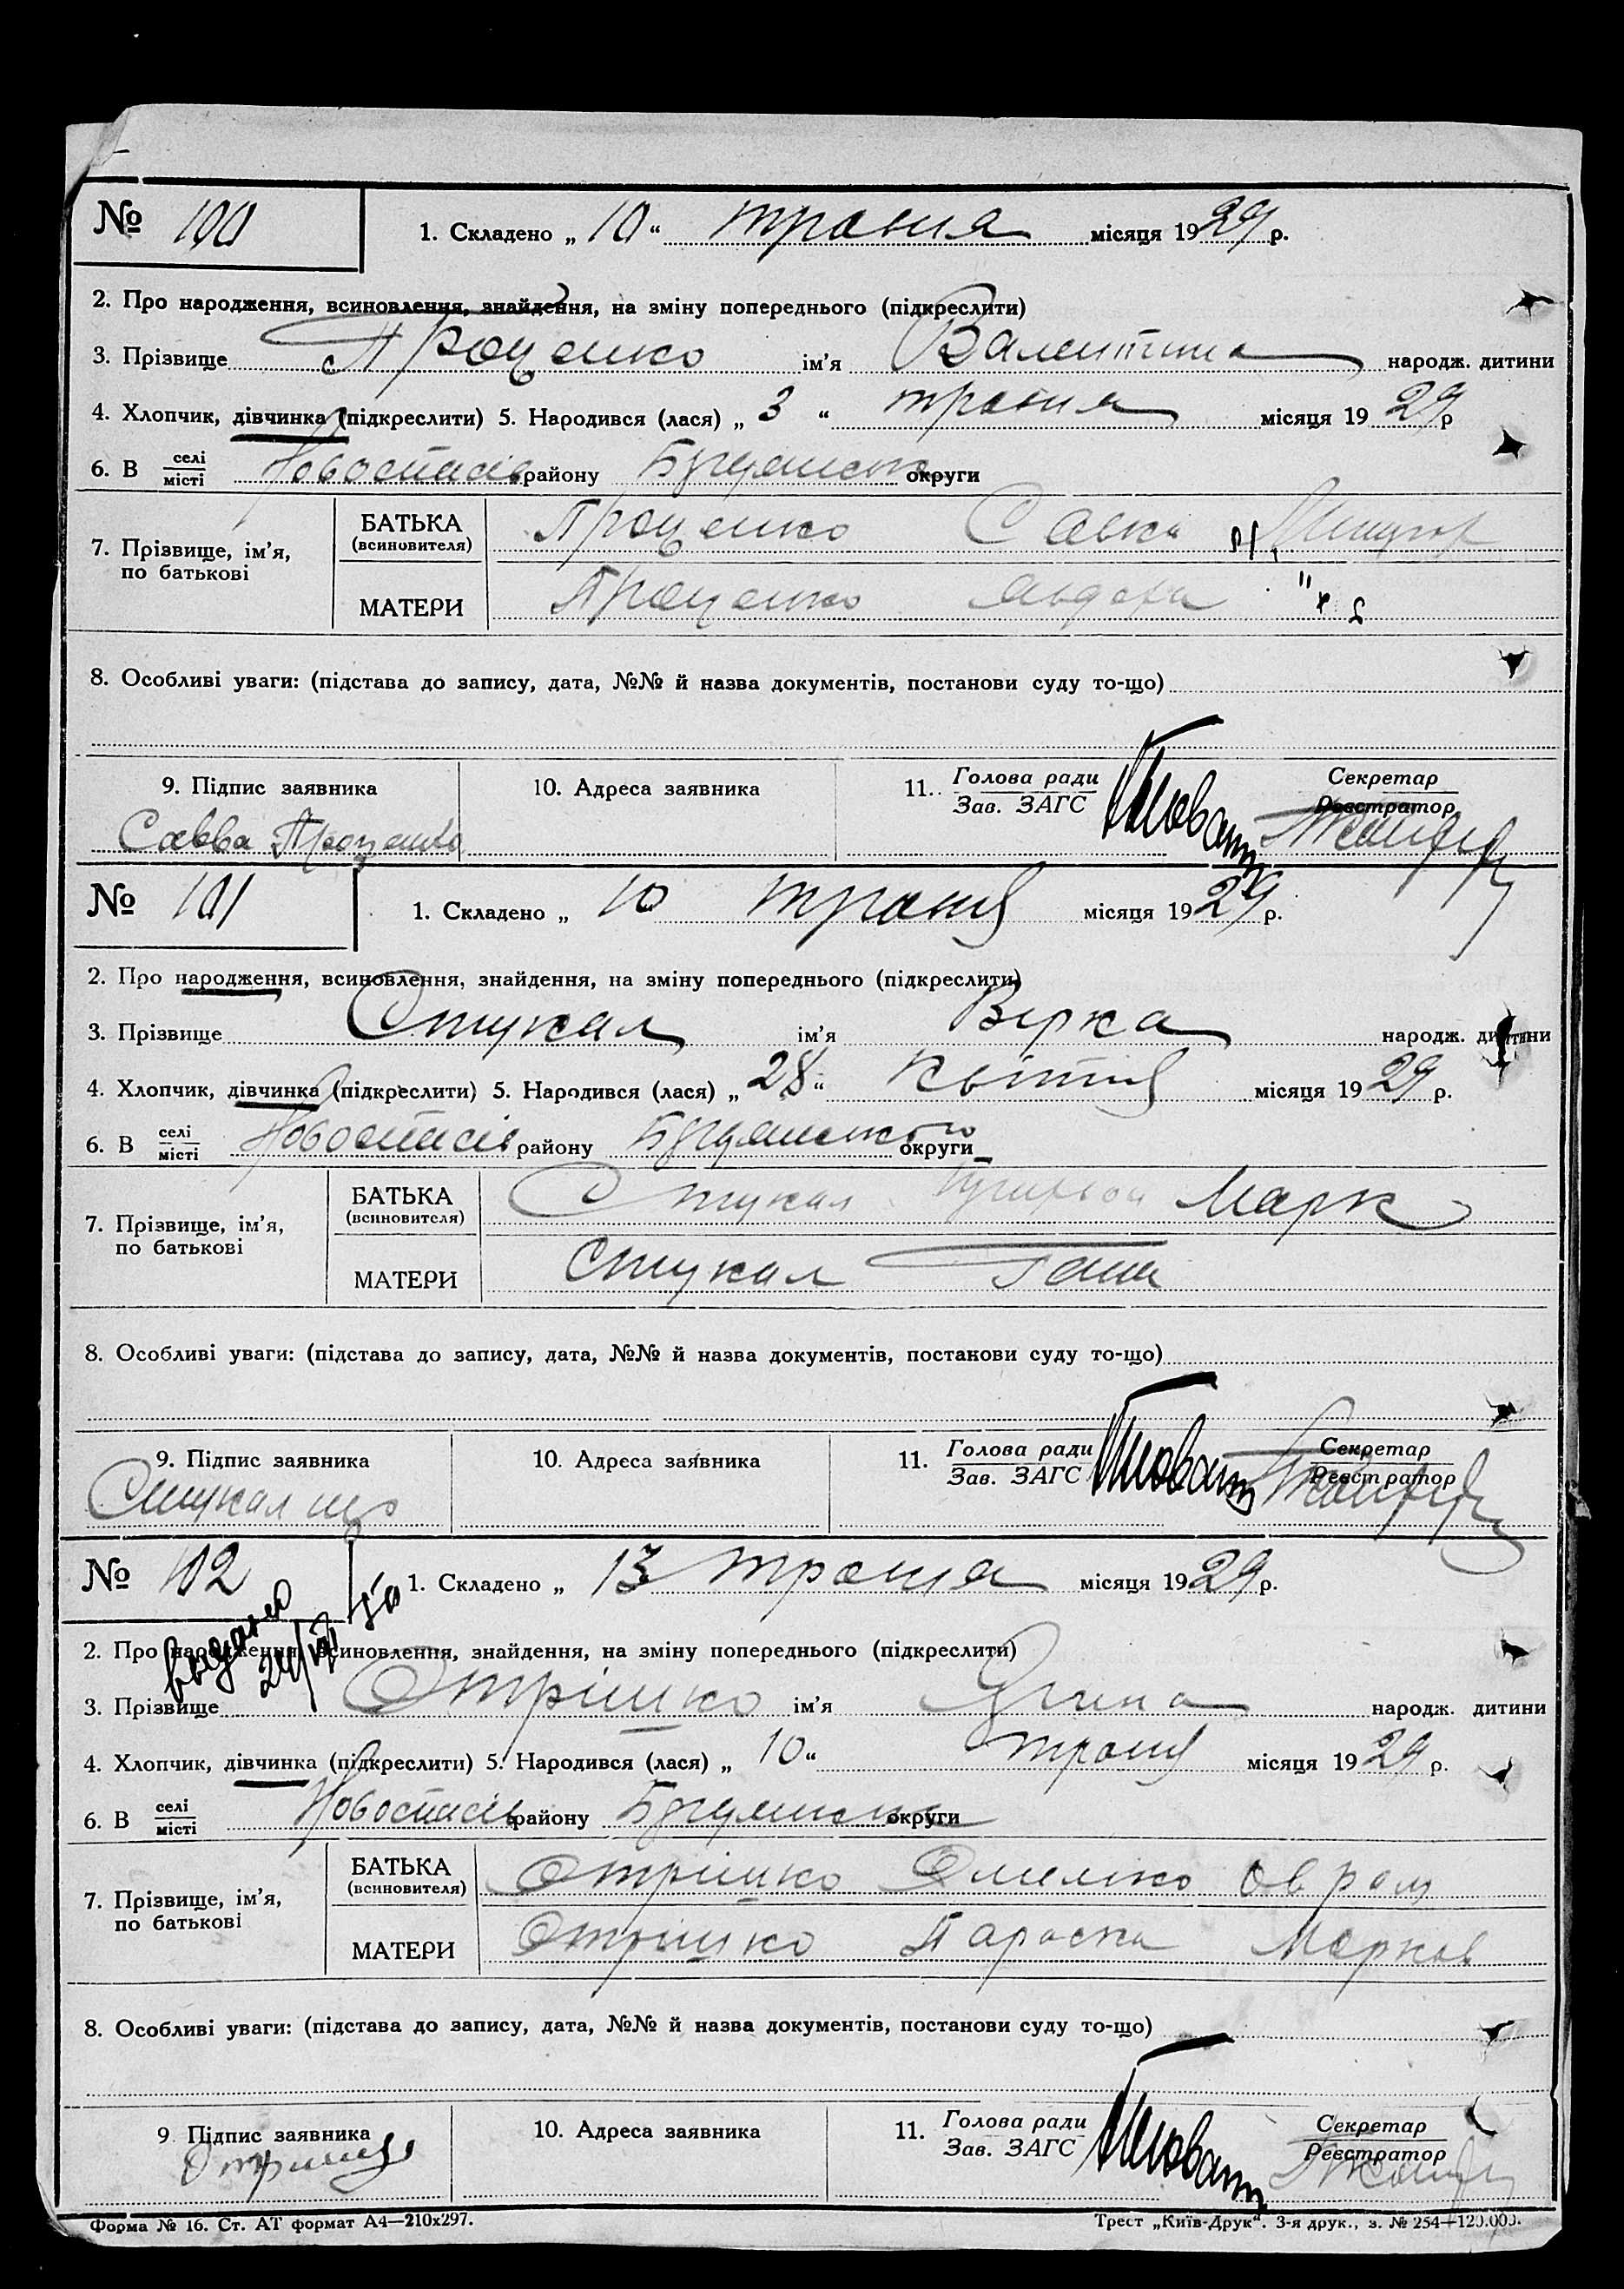 № 100 1. Складено „ 10 “ травня місяця 1929 р.
2. Про народження, всиновлення, знайдення, на зміну попереднього (підкреслити)
3. Прізвище Проценко ім’я Валентина народж. дитини
4. Хлопчик, дівчинка (підкреслити) 5. Народився (лася) „ 3 “ травня місяця 1929 р
6. В селі місті Новоспасів району округи
7. Прізвище, ім’я, по батькові
БАТЬКА (всиновителя) Проценко Савка
МАТЕРИ Проценко
8. Особливі уваги: (підстава до запису, дата, №№ й назва документів, постанови суду то-що)
9. Підпис заявника 10. Адреса заявника 11. Голова ради Зав. ЗАГС Секретар Реєстратор
Савва Проценко
№ 101 1. Складено „ 10 травня місяця 1929 р.
2. Про народження, всиновлення, знайдення, на зміну попереднього (підкреслити)
3. Прізвище Стукал ім’я Вірка народж. дитини
4. Хлопчик, дівчинка (підкреслити) 5. Народився (лася) „ 28 “ квітня місяця 1929 р.
6. В селі місті Новоспасів району округи
7. Прізвище, ім’я, по батькові
БАТЬКА (всиновителя) Стукал Марк
МАТЕРИ Стукал
8. Особливі уваги: (підстава до запису, дата, №№ й назва документів, постанови суду то-що)
9. Підпис заявника 10. Адреса заявника 11. Голова ради Зав. ЗАГС Секретар Реєстратор
Стукал
№ 102 1. Складено „ 13 травня місяця 1929 р.
2. Про народження, всиновлення, знайдення, на зміну попереднього (підкреслити)
3. Прізвище Отрішко ім’я народж. дитини
4. Хлопчик, дівчинка (підкреслити) 5. Народився (лася) „ 10 “ травня місяця 1929 р.
6. В селі місті Новоспасів району округи
7. Прізвище, ім’я, по батькові
БАТЬКА (всиновителя) Отрішко Омелько
МАТЕРИ Отрішко Параска Марков
8. Особливі уваги: (підстава до запису, дата, №№ й назва документів, постанови суду то-що)
9 Підпис заявника 10. Адреса заявника 11. Голова ради Зав. ЗАГС Секретар Реєстратор
Форма № 16. Ст. АТ формат А4—210х297. Трест „Київ-Друк“. 3-я друк., з. № 254—120.000.